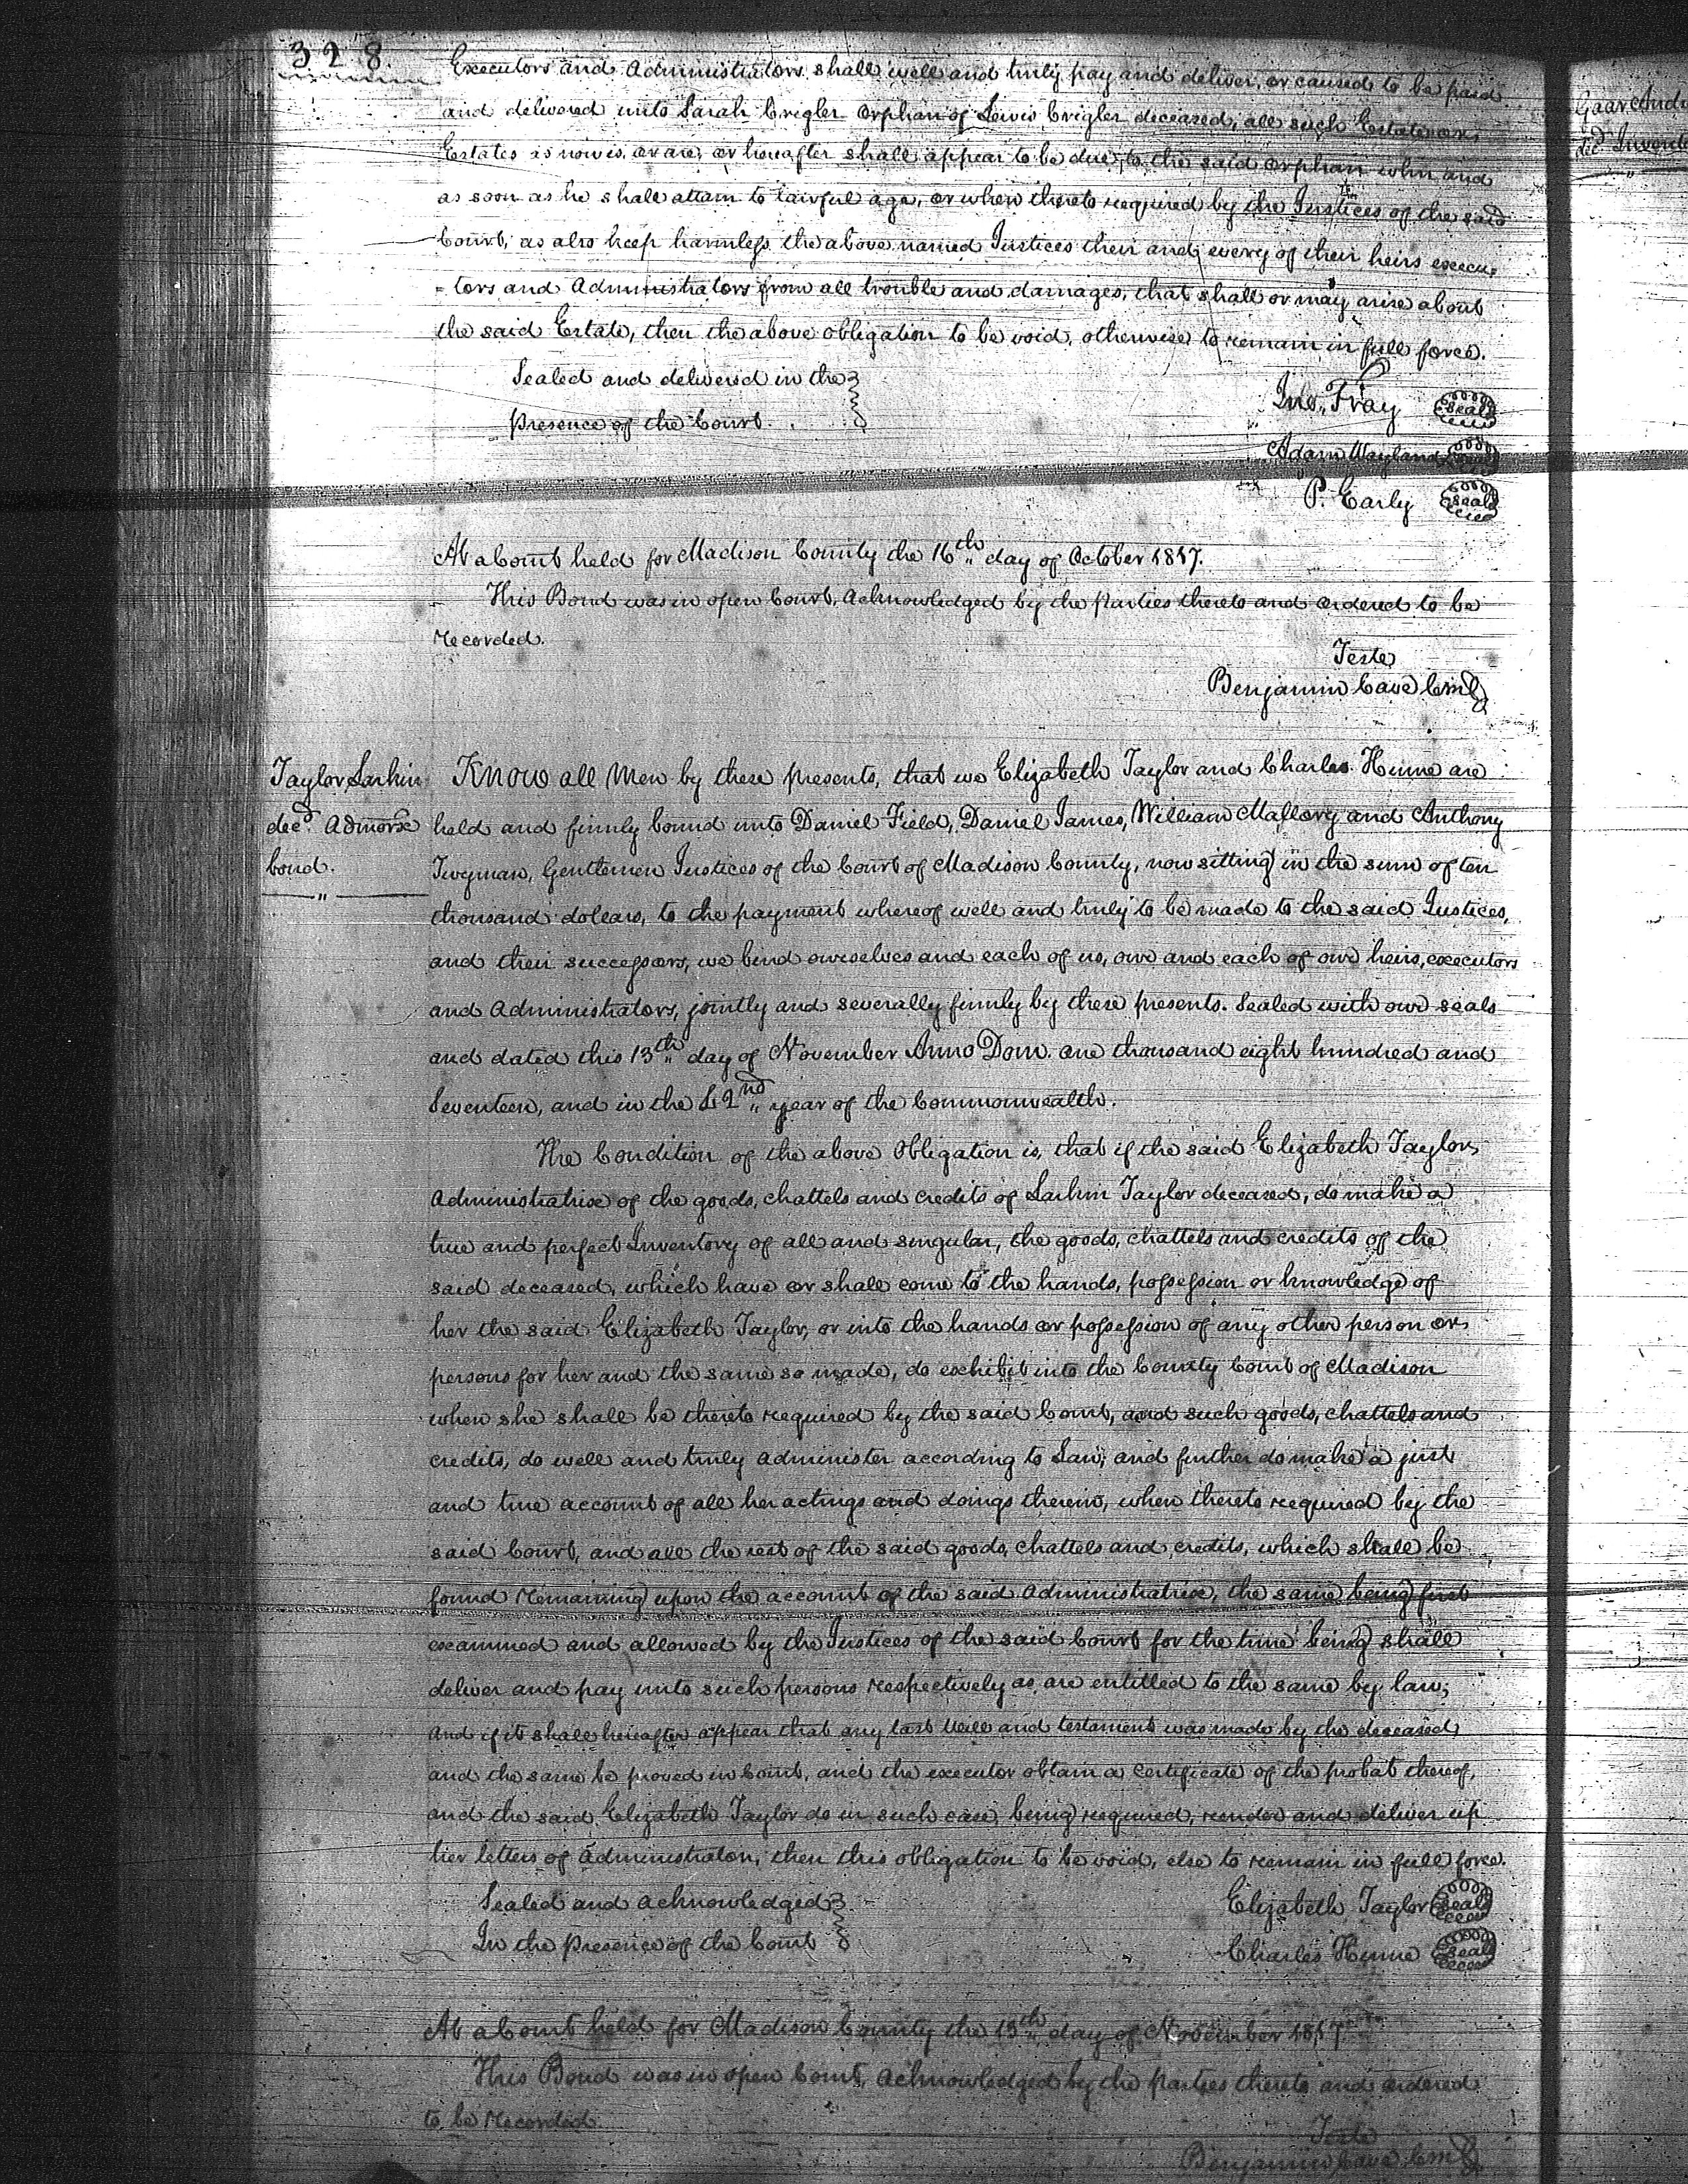 328.
Executors and Administrators shall well and truly pay and deliver, or caused to be paid
and delivered unto Sarah Crigler orphan of Lewis Crigler deceased, all such Estate or
Estates as now is, or are, or hereafter shall appear to be due, to the said orphan when and
as soon as he shall attain to lawful age, or when thereto required by the Justices of the said
Court, as also keep harmless the above named Justices their and every of their heirs execu=
=tors and Administrators from all trouble and damages, that shall or may arise about
the said Estate, then the above obligation to be void, otherwise to remain in full force.
Sealed and delivered in the
presence of the Court.
Jno. Fray seal
Adam Wayland
P. Early seal
At a Court held for Madison County the 16th day of October 1817.
This Bond was in open Court, Acknowledged by the parties thereto and ordered to be
recorded.
Teste
Benjamin Cave CMC
Taylor Larkin
decd. Admorx
bond.
Know all Men by these presents, that we Elizabeth Taylor and Charles Hume are
held and firmly bound unto Daniel Field, Daniel James, William Mallory and Anthony
Twyman, Gentlemen Justices of the Court of Madison County, now sitting in the sum of ten
thousand dollars, to the payment whereof well and truly to be made to the said Justices,
and their successors, we bind ourselves and each of us, our and each of our heirs, executors
and Administrators, jointly and severally firmly by these presents. Sealed with our seals
and dated this 13th day of November Anno Dom. one thousand eight hundred and
Seventeen, and in the 42nd year of the Commonwealth.
The Condition of the above Obligation is, that if the said Elizabeth Taylor,
Administratrix of the goods, chattels and credits of Larkin Taylor deceased, do make a
true and perfect Inventory of all and singular, the goods, chattels and credits of the
said deceased, which have or shall come to the hands, possession or knowledge of
her the said Elizabeth Taylor, or into the hands or possession of any other person or
persons for her and the same so made, do exhibit into the County Court of Madison
when she shall be thereto required by the said Court, and such goods, chattels and
credits, do well and truly administer according to Law, and further do make a just
and true account of all her actings and doings therein, when thereto required by the
said Court, and all the rest of the said goods, chattels and credits, which shall be
found remaining upon the account of the said Administratrix, the same being first
examined and allowed by the Justices of the said Court for the time being shall
deliver and pay unto such persons respectively as are entitled to the same by law;
And if it shall hereafter appear that any last Will and testament was made by the deceased,
and the same be proved in Court, and the executor obtain a Certificate of the probat thereof,
and the said Elizabeth Taylor do in such case, being required, render and deliver up
her letters of Administraton, then this obligation to be void, else to remain in full force.
Sealed and acknowledged
In the presence of the Court
Elizabeth Taylor seal
Charles Hume seal
At a Court held for Madison County the 13th day of November 1817
This Bond was in open Court, Acknowledged by the parties thereto and ordered
to be recorded.
Teste
Benjamin Cave CMC
Gaar
decd